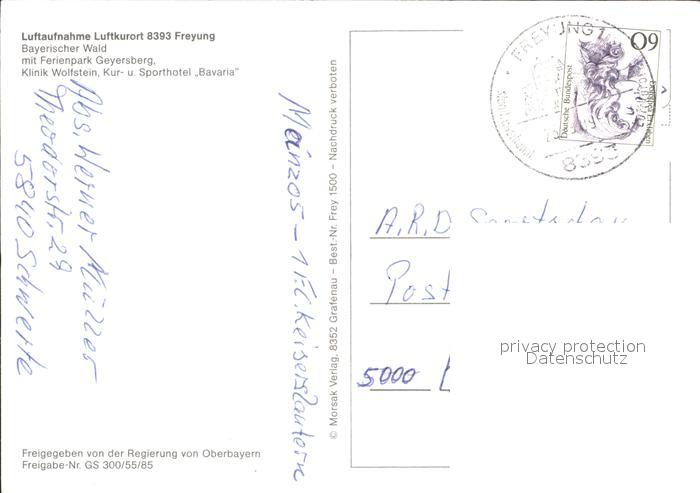 Luftaufnahme Luftkurort 8393 Freyung
Bayerischer Wald
mit Ferienpark Geyersberg,
Klinik Wolfstein, Kur- u. Sporthotel „Bavaria"
Abs. Werner Müller
Theodorstr. 29
5840 Schwerte
Mainz 05 – 1 F.C. Kaiserslautern
© Morsak Verlag, 8352 Grafenau – Best.-Nr. Frey 1500 – Nachdruck verboten
FREYUNG 1
8393
60
Deutsche Bundespost
A.R.D. Sportschau
Post
5000
privacy protection
Datenschutz
Freigegeben von der Regierung von Oberbayern
Freigabe-Nr. GS 300/55/85